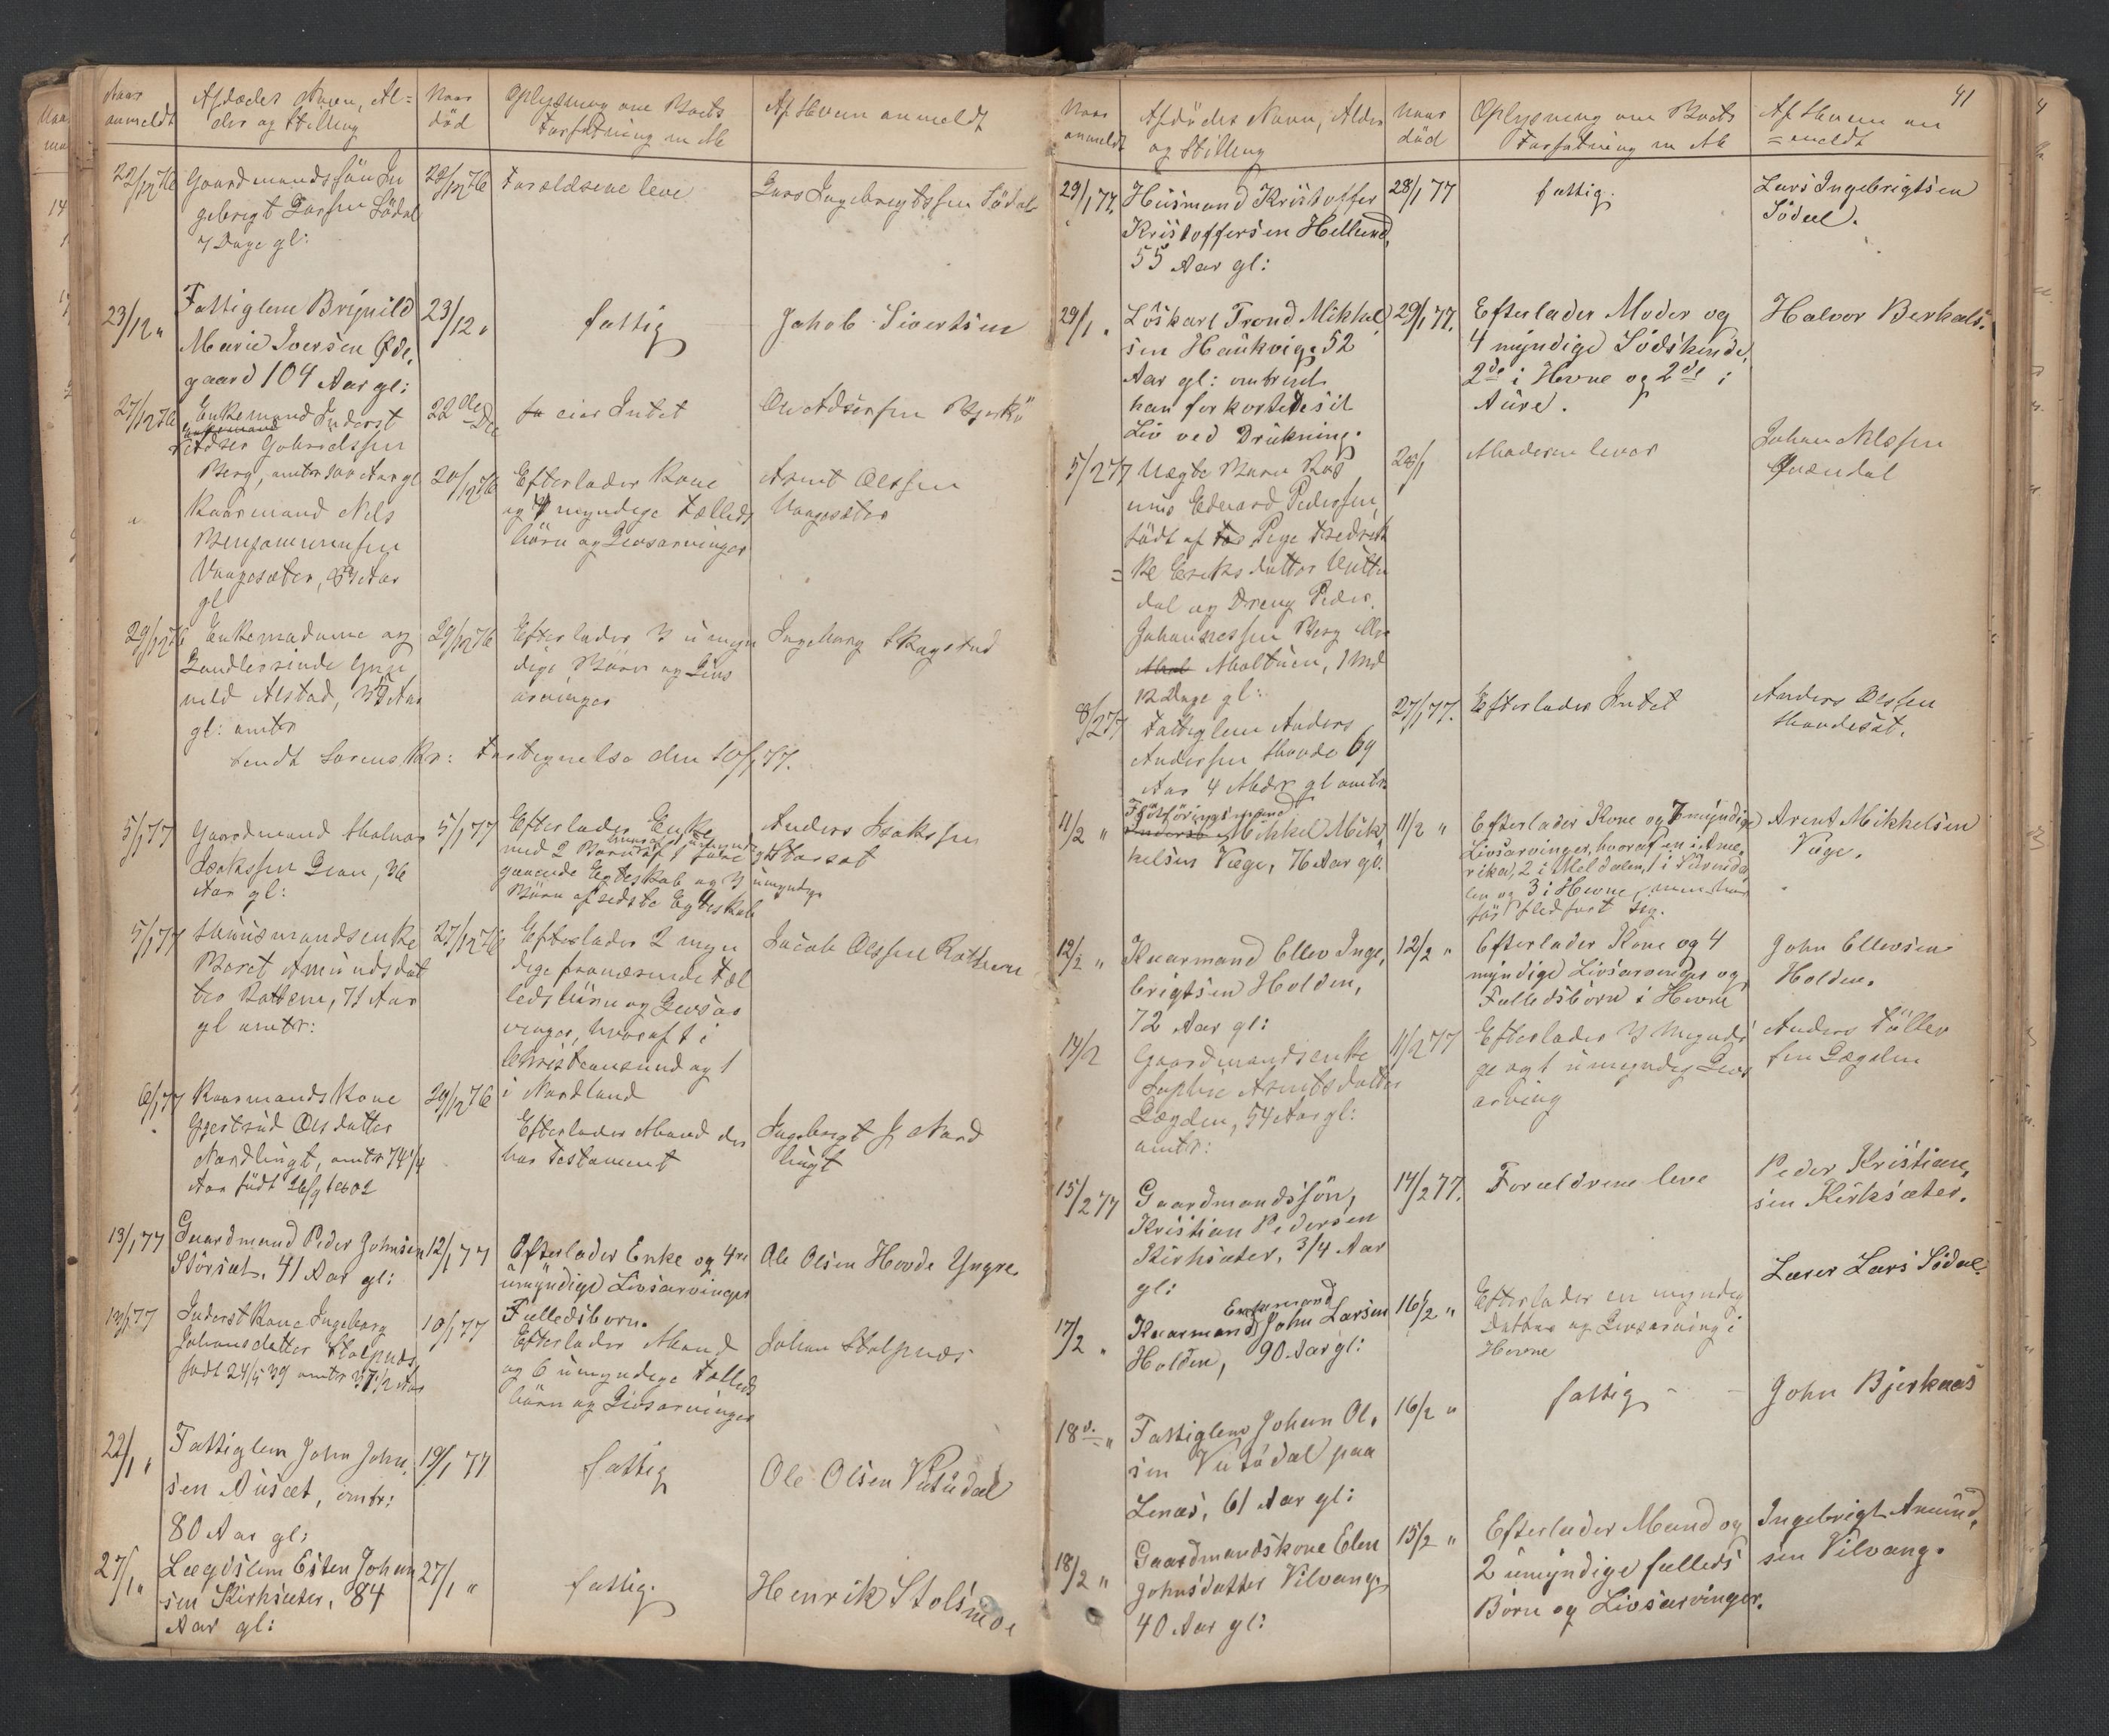 Naar
anmeldt
Afdødes Navn, Al=
der og Stilling
Naar
död
Oplysning om Boets
Forfatning m M
Af Hvem anmeldt
22/12 76
Gaardmandssön In
gebrigt Larsen Södal
7 Dage gl:
22/12 76
Forældrene leve
Lars Ingebrigtssen Södal
23/12 "
Fattiglem Brynild
Marie Iversen Øde,
gaard 104 Aar gl:
23/12 "
fattig
Jakob Sivertsen
27/12 76
Enkemand Inderst
Gabrielssen
Berg, omtr 100 Aar gl
22 Dec
eier Intet
Ole Adsersen
"
Kaarmand Nils
Benjaminsen
Vaagosæter,
gl
20/12 76
Efterlader Kone
og 4 myndige Fælleds
börn og Livsarvinger
Arnt Olssen
Vaagosæter
29/12 76
Enkemadame og
Landhandlerinde
Alstad, Aar
gl: omtr
29/12 76
Efterlader 3 umyn
dige Börn og Livs
arvinger
Ingeborg Skagstad
Sendt Sorensk: Fortegnelse den 10/1 77.
5/1 77
Gaardmand Halvor
Isakssen Lian, 36
Aar gl:
5/1 77
Efterlader Enke
med 2 Börn af 1 fore
gaaende Egteskab og 3 umyndige
Börn af sidste Egteskab
Anders Isakssen
Storset
5/1 77
Huusmandsenke
Beret Amundsdat
ter Rottem, 71 Aar
gl omtr:
27/12 76
Efterlader 2 myn
dige fraværende Fæl
ledsbörn og Livsar
vinger, hvoraf 1 i
Christiansund og 1
i Nordland
Jacob Olssen Rottem
6/1 77
Kaarmands Kone
Gjertrud Olsdatter
Nordlingt, omtr 74 1/4
Aar födt
29/12 76
Efterlader Mand der
har Testament
Ingebrigt J Nord
lingt
13/1 77
Gaardmand Peder Johnsen
Storsæt, 41 Aar gl:
12/1 77
Efterlader Enke og 4re
umyndige Livsarvinger
Fælledsborn.
Ole Olsen Hovde Yngre.
13/1 77
Inderst Kone Ingeborg
Johansdatter Stolpnæs,
födt 24/5 39 omtr 37 1/2 Aar
10/1 77
Efterlader Mand
og 6 umyndige Fælleds
börn og Livsarvinger
Johan Stolpnæs
22/1 "
Fattiglem John John,
sen Auset, omtr:
80 Aar gl:
19/1 77
fattig
Ole Olsen Vutudal
27/1 "
Lægdslem Esten Johan
sen Kirksæter, 84
Aar gl:
27/1 "
fattig.
Henrik Stolsmoe
41
Naar
anmeldt
Afdödes Navn, Alder
og Stilling
Naar
död
Oplysning om Boets
Forfatning m M
Af Hvem an
=meldt
29/1 77.
Husmand Kristoffer
Kristoffersen Hellund,
55 Aar gl:
28/1 77
fattig.
Lars Ingebrigtsen
Södal.
29/1 "
Löskarl Trond Mikkel
sen Haukvig. 52
Aar gl: omtrent.
han forkortedes sit
Liv ved Drukning.
29/1 77.
Efterlader Moder og
4 myndige Södskende,
2de i Hevne og 2de i
Aure.
Halvor Berkaas.
5/2 77
Uægte Barn Ras
mus Edvard Pedersen,
födt af Pige Fredrik
ke Eriksdatter Vuttu
dal og Dreng Peder
Johannessen Berg
Moltuen, 1 Md
12 Dage gl:
28/1
Moderen lever
Johan Nilssen
Qvændal
8/2 77
Fattiglem Anders
Anderssen Hovde 69
Aar 4 Mdr gl omtr
27/1 77.
Efterlader Intet
Anders Olssen
Hovdesæt.
11/2 "
Födföringsmand
Mikkel Mik
kelsen Vaage, 76 Aar gl:
11/2 "
Efterlader Kone og 7 myndige
Livsarvinger, hvoraf en i Ame,
rika, 2 i Meldalen, 1 i Surenda
len og 3 i Hevne,
för fledfört sig.
Arent Mikkelsen
Vaage.
12/2 "
Kaarmand Ellev Inge,
brigtsen Holden,
72 Aar gl:
12/2 "
Efterlader Kone og 4
myndige Livsarvinger og
Fælledsbörn i Hevne
John Ellevsen
Holden.
14/2
Gaardmandsenke
Sophie Arntsdatter
Lægden, 54 Aar gl:
omtr:
11/2 77
Efterlader 3 myndi
ge og 1 umyndig Livs
arving
Anders Tøllev
sen Lægden
15/2 77
Gaardmandssön,
Kristian Pedersen
Kirksæter, 3/4 Aar
gl:
14/2 77.
Forældrene leve
Peder Kristian,
sen Kirksæter.
17/2 "
Enkemand
Kaarmand John Larsen
Holden, 90 Aar gl:
16/2 "
Efterlader en myndig
Datter og Livsarving i
Hevne
Lærer Lars Södal.
18de "
Fattiglem Johan Ol,
sen Vutudal paa
Lenæs, 61 Aar gl:
16/2 "
fattig
John Bjerkaas
18/2 "
Gaardmandskone Elen
Johnsdatter Vilvang,
40 Aar gl:
15/2 "
Efterlader Mand og
2 umyndige fælleds
Börn og Livsarvinger.
Ingebrigt Amund,
sen Vilvang.